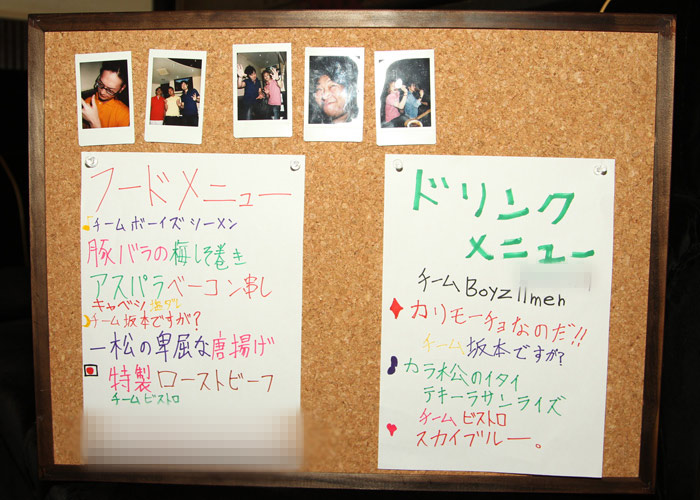 フードメニュー
チームボーイズシーメン
豚バラの梅しそ巻き
アスパラベーコン串し
キャベツ 塩ダレ
チーム坂本ですが?
一松の卑屈な唐揚げ
特製ローストビーフ
チームビストロ
ドリンク
メニュー
チームBoyz II men
カリモーチョなのだ!!
チーム坂本ですが?
カラ松のイタイ
テキーラサンライズ
チームビストロ
スカイブルー。